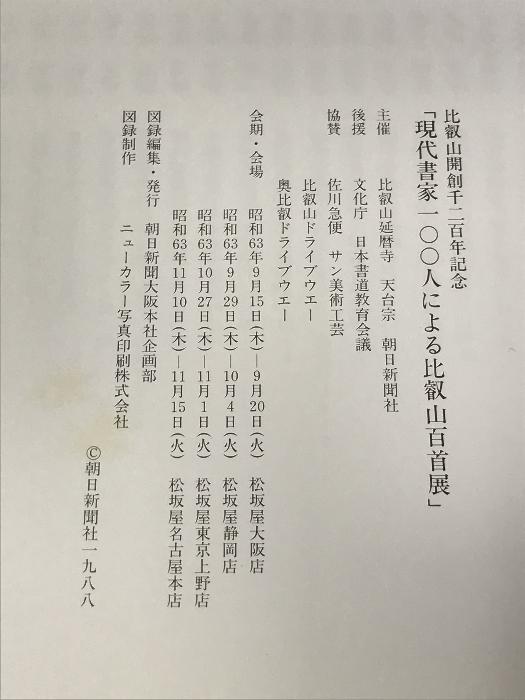 比叡山開創千二百年記念
「現代書家一〇〇人による比叡山百首展」
主催　比叡山延暦寺　天台宗　朝日新聞社
後援　文化庁　日本書道教育会議
協賛　佐川急便　サン美術工芸
比叡山ドライブウエー
奥比叡ドライブウエー
会期・会場　昭和63年9月15日(木)―9月20日(火)　松坂屋大阪店
昭和63年9月29日(木)―10月4日(火)　松坂屋静岡店
昭和63年10月27日(木)―11月1日(火)　松坂屋東京上野店
昭和63年11月10日(木)―11月15日(火)　松坂屋名古屋本店
図録編集・発行　朝日新聞大阪本社企画部
図録制作　ニューカラー写真印刷株式会社
©朝日新聞社一九八八